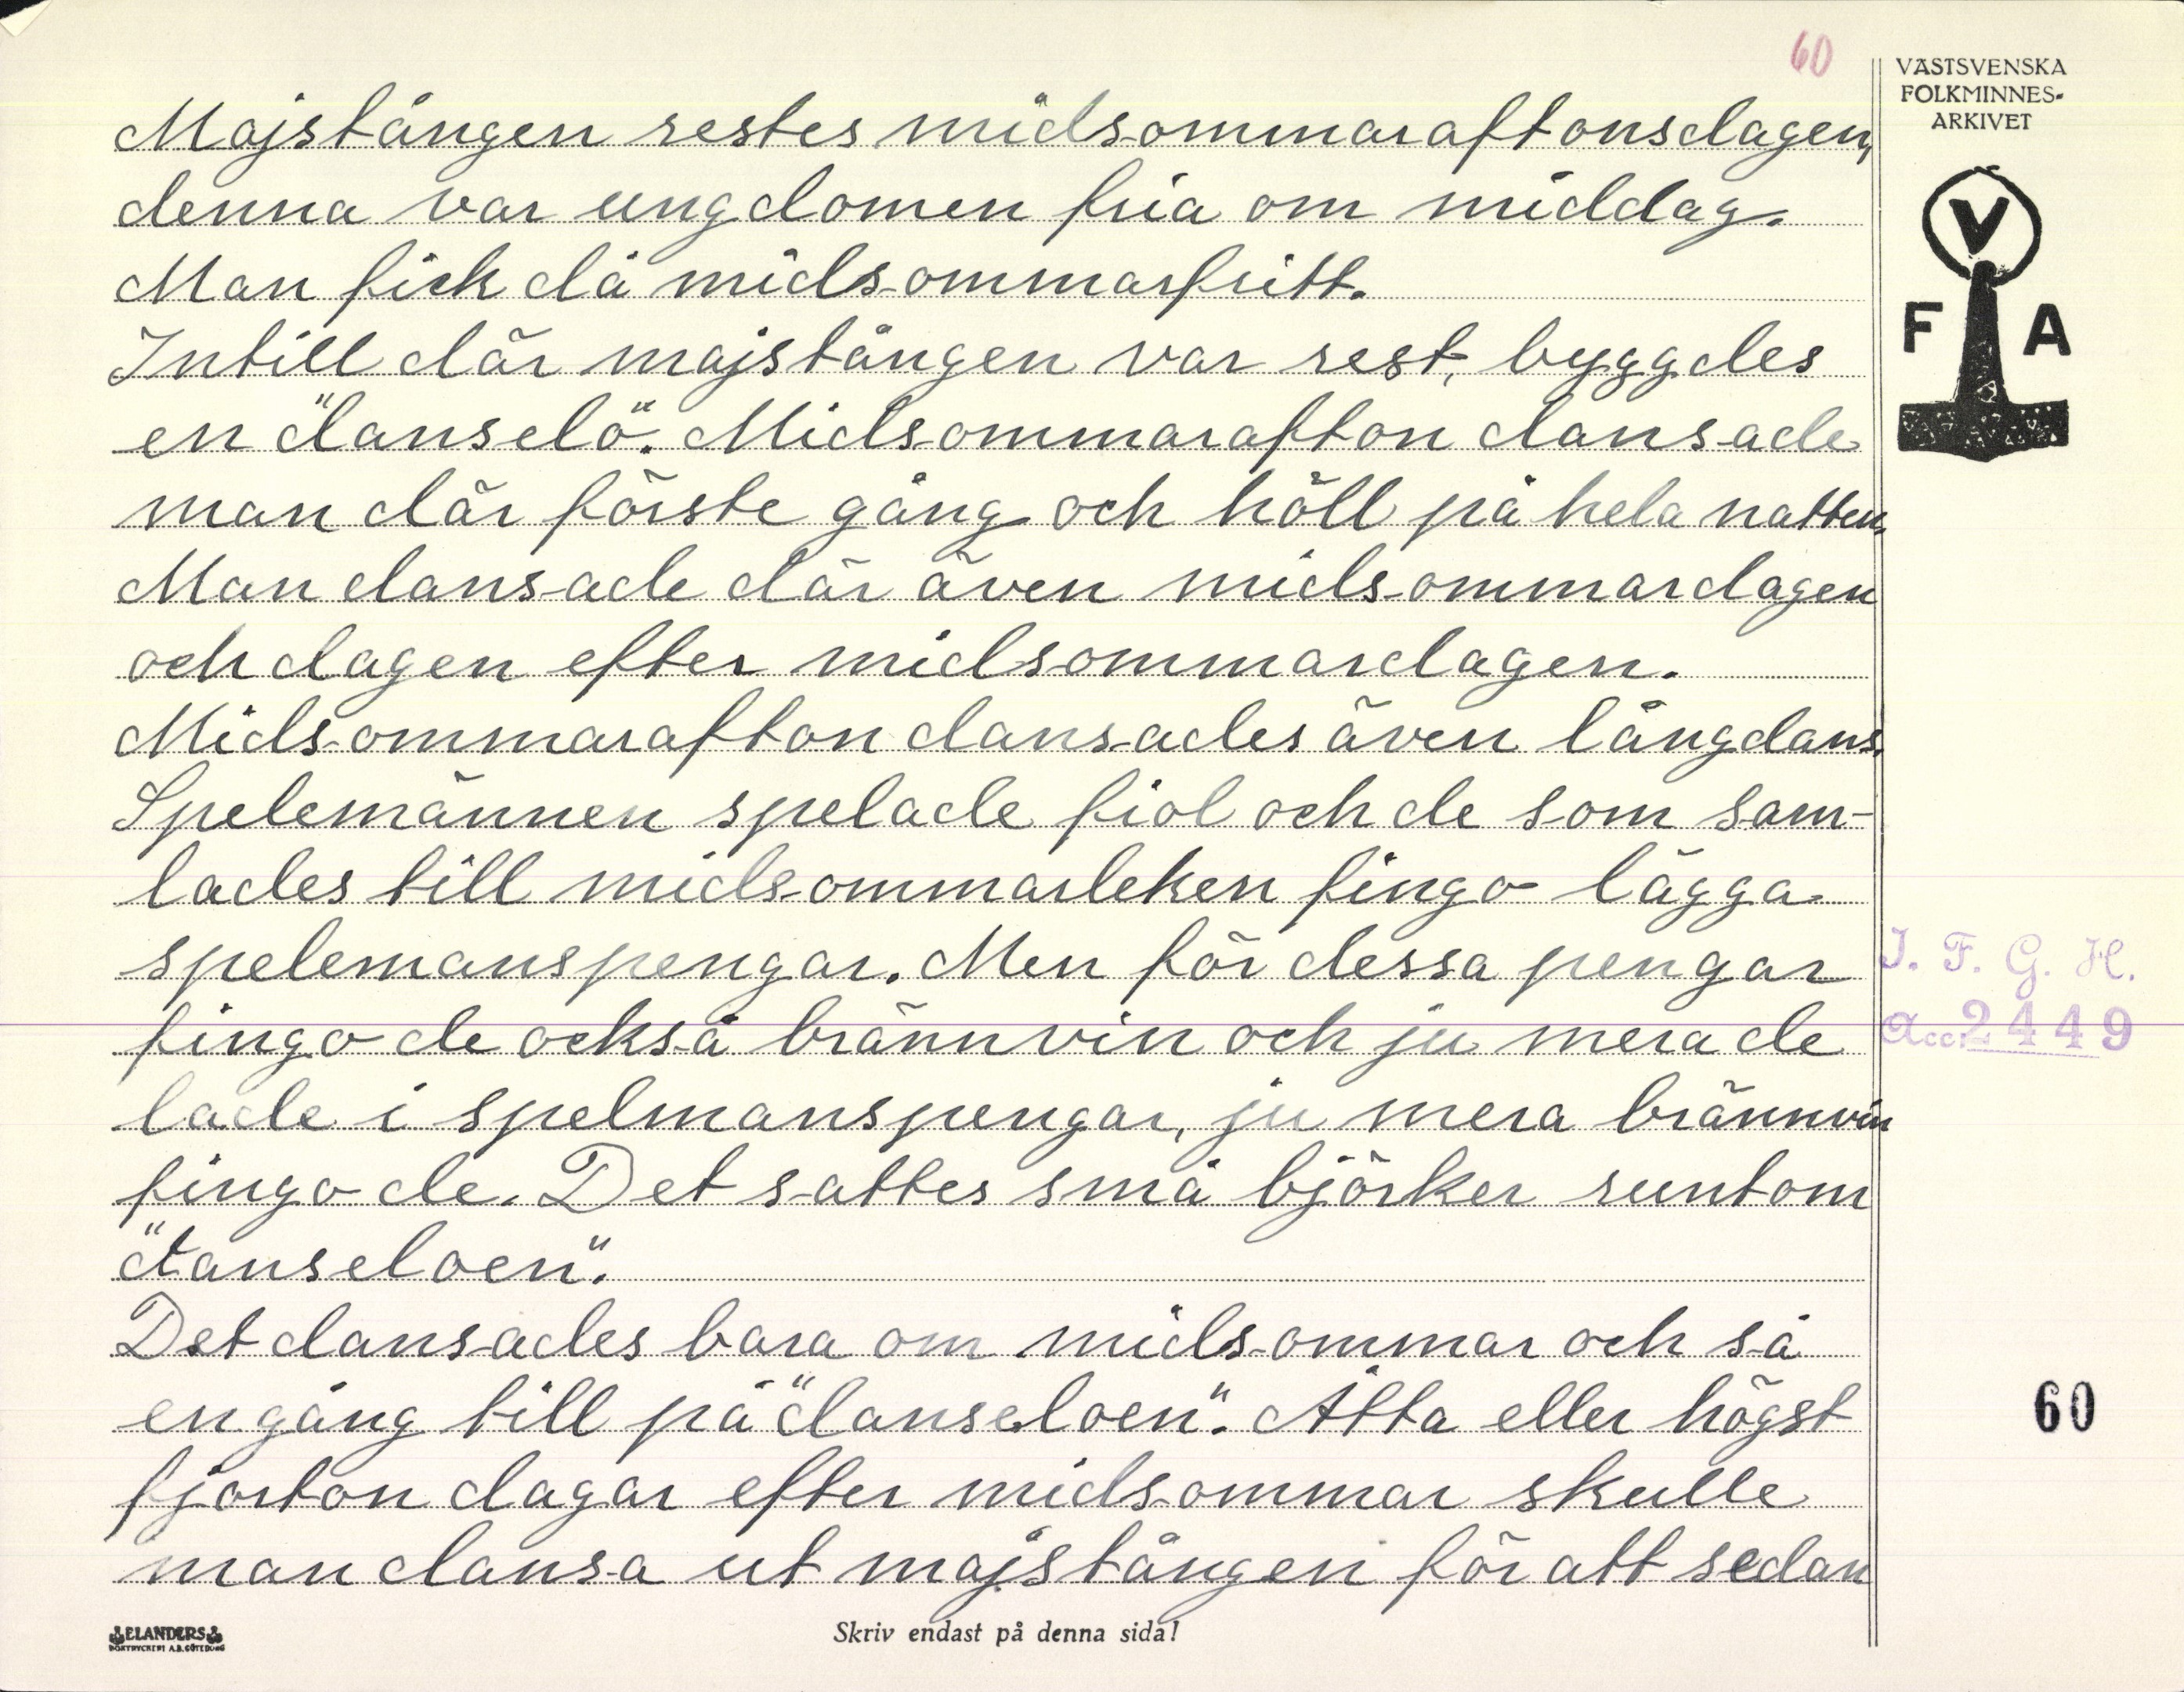 60
VÄSTSVENSKA
FOLKMINNES-
ARKIVET
V
F A
Majstången restes midsommaraftonsdagen,
denna var ungdomen fria om middag.
Man fick då midsommarfritt.
Intill där majstången var rest, byggdes
en "danselö". Midsommarafton dansade
man där förste gång och höll på hela natten.
Man dansade där även midsommardagen
och dagen efter midsommardagen.
Midsommarafton dansades även långdans.
Spelemännen spelade fiol och de som sam-
lades till midsommarleken fingo lägga
spelemanspengar. Men för dessa pengar
fingo de också brännvin och ju mera de
lade i spelmanspengar, ju mera brännvin
fingo de. Det sattes små björker runtom
"danseloen".
Det dansades bara om midsommar och så
en gång till på "danseloen". Åtta eller högst
fjorton dagar efter midsommar skulle
man dansa ut majstången för att sedan
I. F. G. H.
Acc. 2449
60
ELANDERS
BOKTRYCKERI A.B. GÖTEBORG
Skriv endast på denna sida!